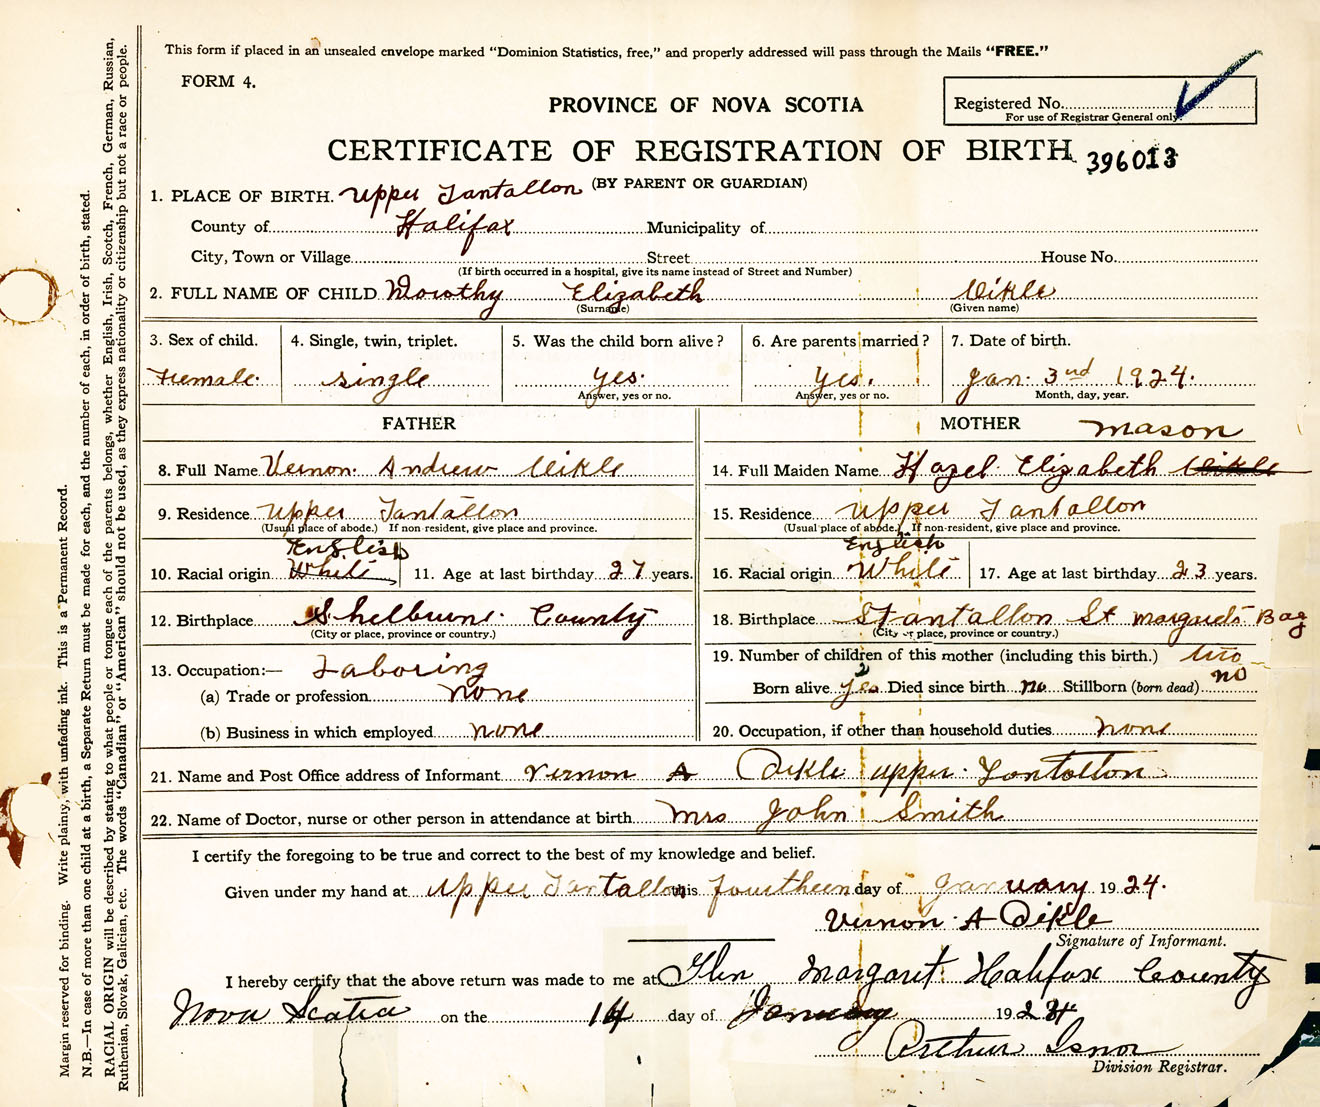 This form if placed in an unsealed envelope marked "Dominion Statistics, free," and properly addressed will pass through the Mails "FREE."
FORM 4.
PROVINCE OF NOVA SCOTIA
Registered No.
For use of Registrar General only.
CERTIFICATE OF REGISTRATION OF BIRTH 396013
(BY PARENT OR GUARDIAN)
1. PLACE OF BIRTH. Upper Tantallon
County of Halifax Municipality of
City, Town or Village Street House No.
(If birth occurred in a hospital, give its name instead of Street and Number)
2. FULL NAME OF CHILD Dorothy Elizabeth
(Surname) (Given name)
3. Sex of child. 4. Single, twin, triplet. 5. Was the child born alive? 6. Are parents married? 7. Date of birth.
Female. single yes. yes. Jan. 3rd 1924.
Answer, yes or no. Answer, yes or no. Month, day, year.
FATHER MOTHER
Mason
8. Full Name Vernon. Andrew 14. Full Maiden Name Hazel Elizabeth
9. Residence Upper Tantallon 15. Residence Upper Tantallon
(Usual place of abode.) If non-resident, give place and province. (Usual place of abode.) If non-resident, give place and province.
English English
10. Racial origin White 11. Age at last birthday 27 years. 16. Racial origin White 17. Age at last birthday 23 years.
12. Birthplace Shelburne. County 18. Birthplace Tantallon St Margarets Bay
(City or place, province or country.) (City or place, province or country.)
13. Occupation:— Laboring 19. Number of children of this mother (including this birth.) two
(a) Trade or profession none Born alive 2 yes Died since birth no Stillborn (born dead) no
(b) Business in which employed none 20. Occupation, if other than household duties none
21. Name and Post Office address of Informant Vernon A Upper Tantallon
22. Name of Doctor, nurse or other person in attendance at birth Mrs John Smith
I certify the foregoing to be true and correct to the best of my knowledge and belief.
Given under my hand at Upper Tantallon this fourtheen day of January 1924.
Vernon A
Signature of Informant.
I hereby certify that the above return was made to me at Glen Margaret Halifax County
Nova Scotia on the 14 day of January 1924
Arthur Isnor
Division Registrar.
Margin reserved for binding. Write plainly, with unfading ink. This is a Permanent Record.
N.B.—In case of more than one child at a birth, a Separate Return must be made for each, and the number of each, in order of birth, stated.
RACIAL ORIGIN will be described by stating to what people or tongue each of the parents belongs, whether English, Irish, Scotch, French, German, Russian,
Ruthenian, Slovak, Galician, etc. The words "Canadian" or "American" should not be used, as they express nationality or citizenship but not a race or people.